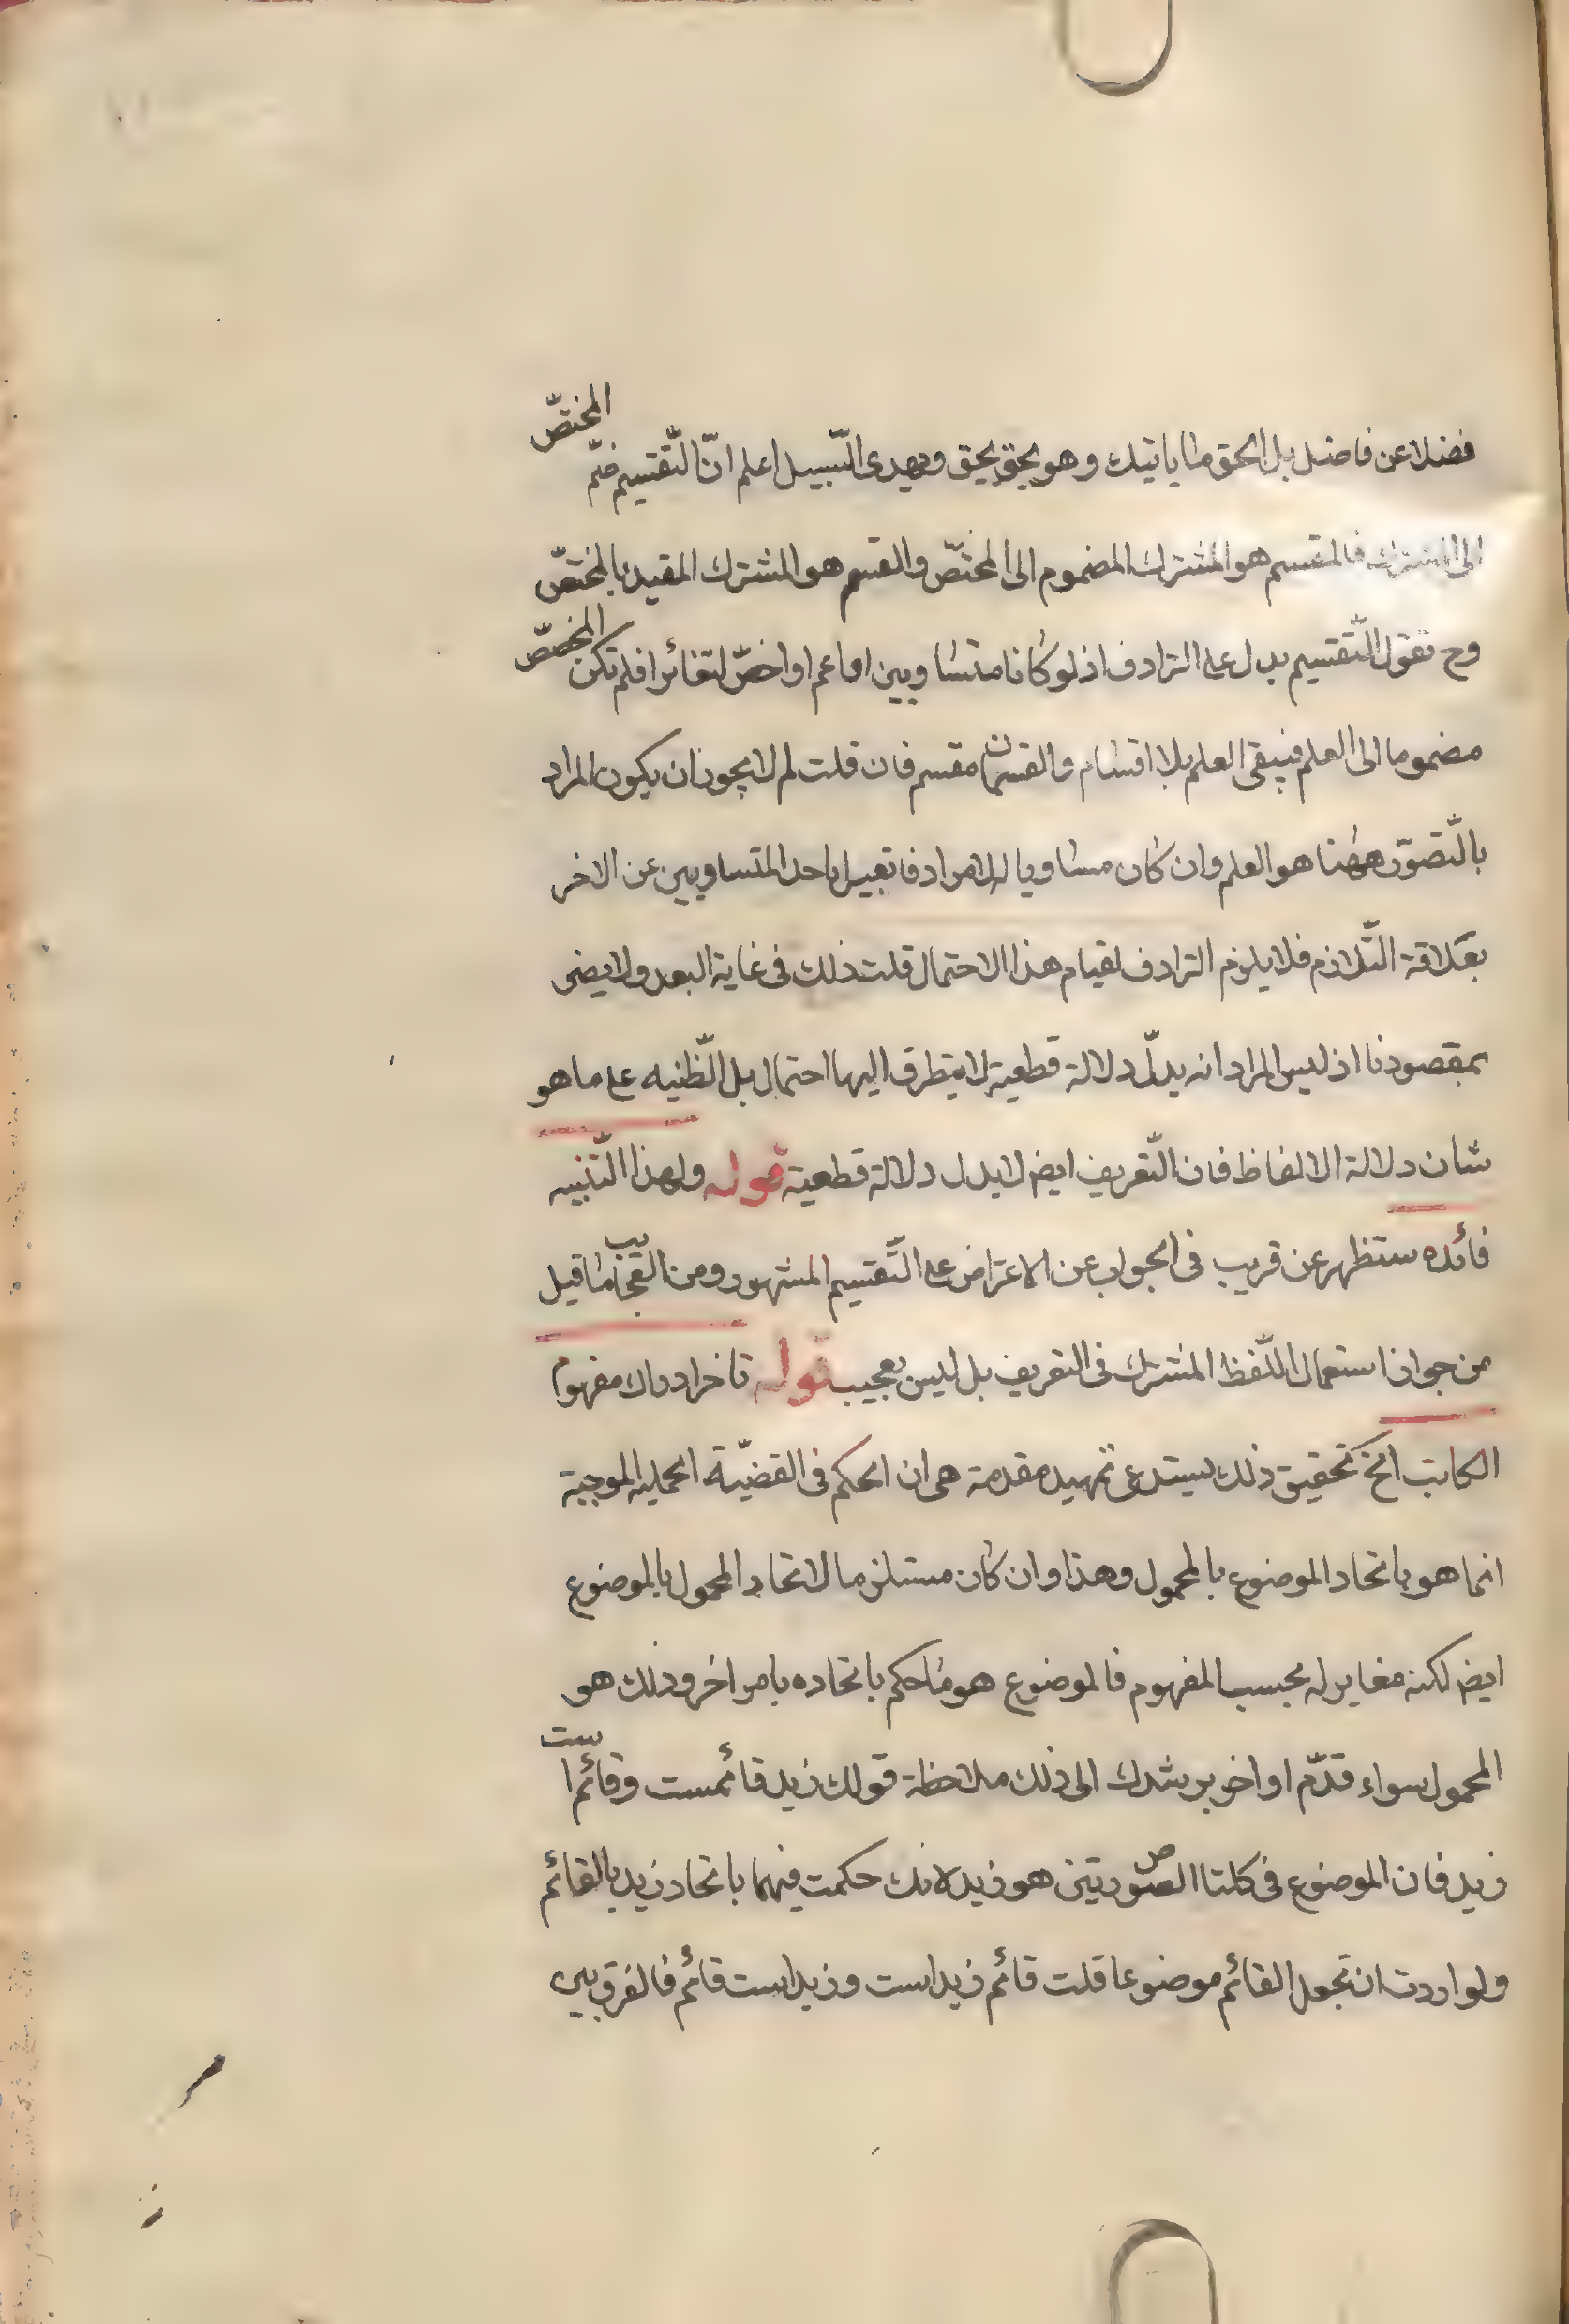 فضلا عن فاضل بل الحق ما ياتيك وهو يحق بحق ويهدى السّبيل اعلم انّ التّقسيم ضمّ المختصّ
الى المشترك فالمقسم هو المشترك المضموم الى المختصّ والقسم هو المشترك المقيد بالمختصّ
وح نقول التّقسيم يدل على الترادف اذ لو كانا متساويين او اعم او اخصّ لتغائرا فلم تكن المختصّ
مضموما الى العلم فيبقى العلم بلا اقسام والقسمان مقسم فان قلت لم لا يجوز ان يكون المراد
بالتّصوّر ههنا هو العلم وان كان مساويا له لا مرادفا تعبيرا باحد المتساويين عن الاخر
بعلاقة التّلازم فلا يلزم الترادف لقيام هذا الاحتمال قلت ذلك فى غاية البعد ولا يضر
بمقصودنا اذ ليس المراد انه يدلّ دلالة قطعية لا يتطرق اليها احتمال بل الظّنيه على ما هو
شان دلالة الالفاظ فان التّعريف ايض لا يدل دلالة قطعية قوله ولهذا التّنبيه
فائده ستظهر عن قريب فى الجواب عن الاعتراض على التّقسيم المشهور ومن العجايب ما قيل
من جواز استعمال اللّفظ المشترك فى التعريف بل ليس بعجيب قوله تاخر ادراك مفهوم
الكاتب الخ تحقيق ذلك يستدعى تمهيد مقدمة هى ان الحكم فى القضيّة الحمليه الموجبة
انما هو باتحاد الموضوع بالمحمول وهذا وان كان مستلزما لاتحاد المحمول بالموضوع
ايض لكنه مغاير له بحسب المفهوم فالموضوع هو ما حكم باتحاده بامر اخر وذلك هو
المحمول سواء قدّم او اخر يرشدك الى ذلك ملاحظة قولك زيد قائمست وقائم است
زيد فان الموضوع فى كلتا الصورتين هو زيد لانك حكمت فيهما باتحاد زيد بالقائم
ولو اردت ان تجعل القائم موضوعا قلت قائم زيد است وزيد است قائم فالفرق بين